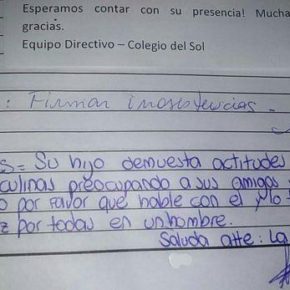 Esperamos contar con su presencia! Mucha
gracias.
Equipo Directivo – Colegio del Sol
: Firmar inasistencias.
S= Su hijo demuesta actitudes
culinas preocupando a sus amigos
o por favor que hable con el,
z por todas en un hombre.
Saluda atte: La